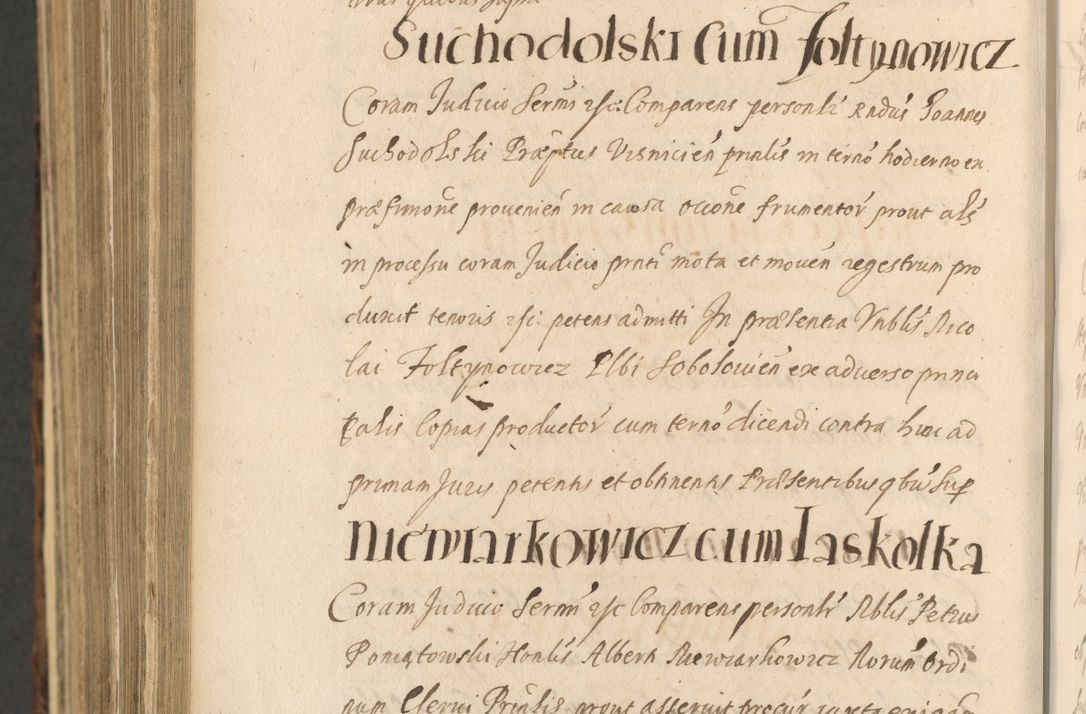 Suchodolski Cum Foltynowicz
Coram Judicio Sermi rsc: Comparens personlr Rndus Joannes
Suchodolski Præptus Visnicien prnlis in terno hodierno ex
præfinione provenien in causa ocione frumentor prout als
in processu coram Judicio prnti mota et moven regestrum pro
duxit tenoris rsc: petens admitti In præsentia Vnblis Nico
lai Foltynowicz Plbi Sobolovien ex adverso princi
palis Copias productor cum terno dicendi contra huic ad
primam Juris petentis et obtinentis Præsentibus qbus sup
Niewiarkowicz cum Iaskolka
Coram Judicio Sermi rsc Comparens personlr Nblis Petrus
Poniatowski Honlis Alberti Niewiarkowicz Norum Ordi
num Clerici Prnlis prout asseruit procur